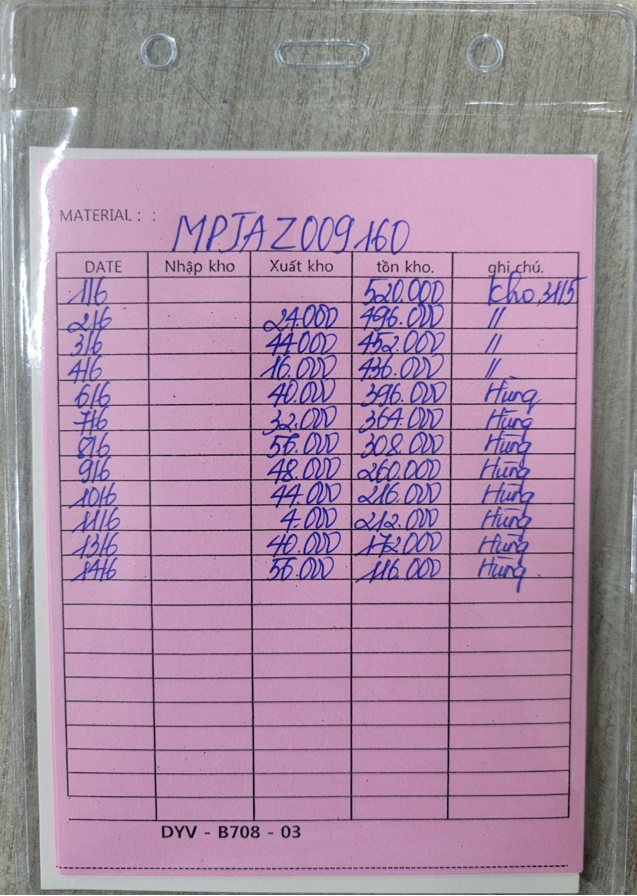 MATERIAL : : MPJAZ009160
DATE Nhập kho Xuất kho tồn kho. ghi chú.
1/6 520.000 kho 31/5
2/6 24.000 496.000 //
3/6 44.000 452.000 //
4/6 16.000 436.000 //
6/6 40.000 396.000 Hùng
7/6 32.000 364.000 Hùng
8/6 56.000 308.000 Hùng
9/6 48.000 260.000 Hùng
10/6 44.000 216.000 Hùng
11/6 4.000 212.000 Hùng
13/6 40.000 172.000 Hùng
14/6 56.000 116.000 Hùng
DYV - B708 - 03